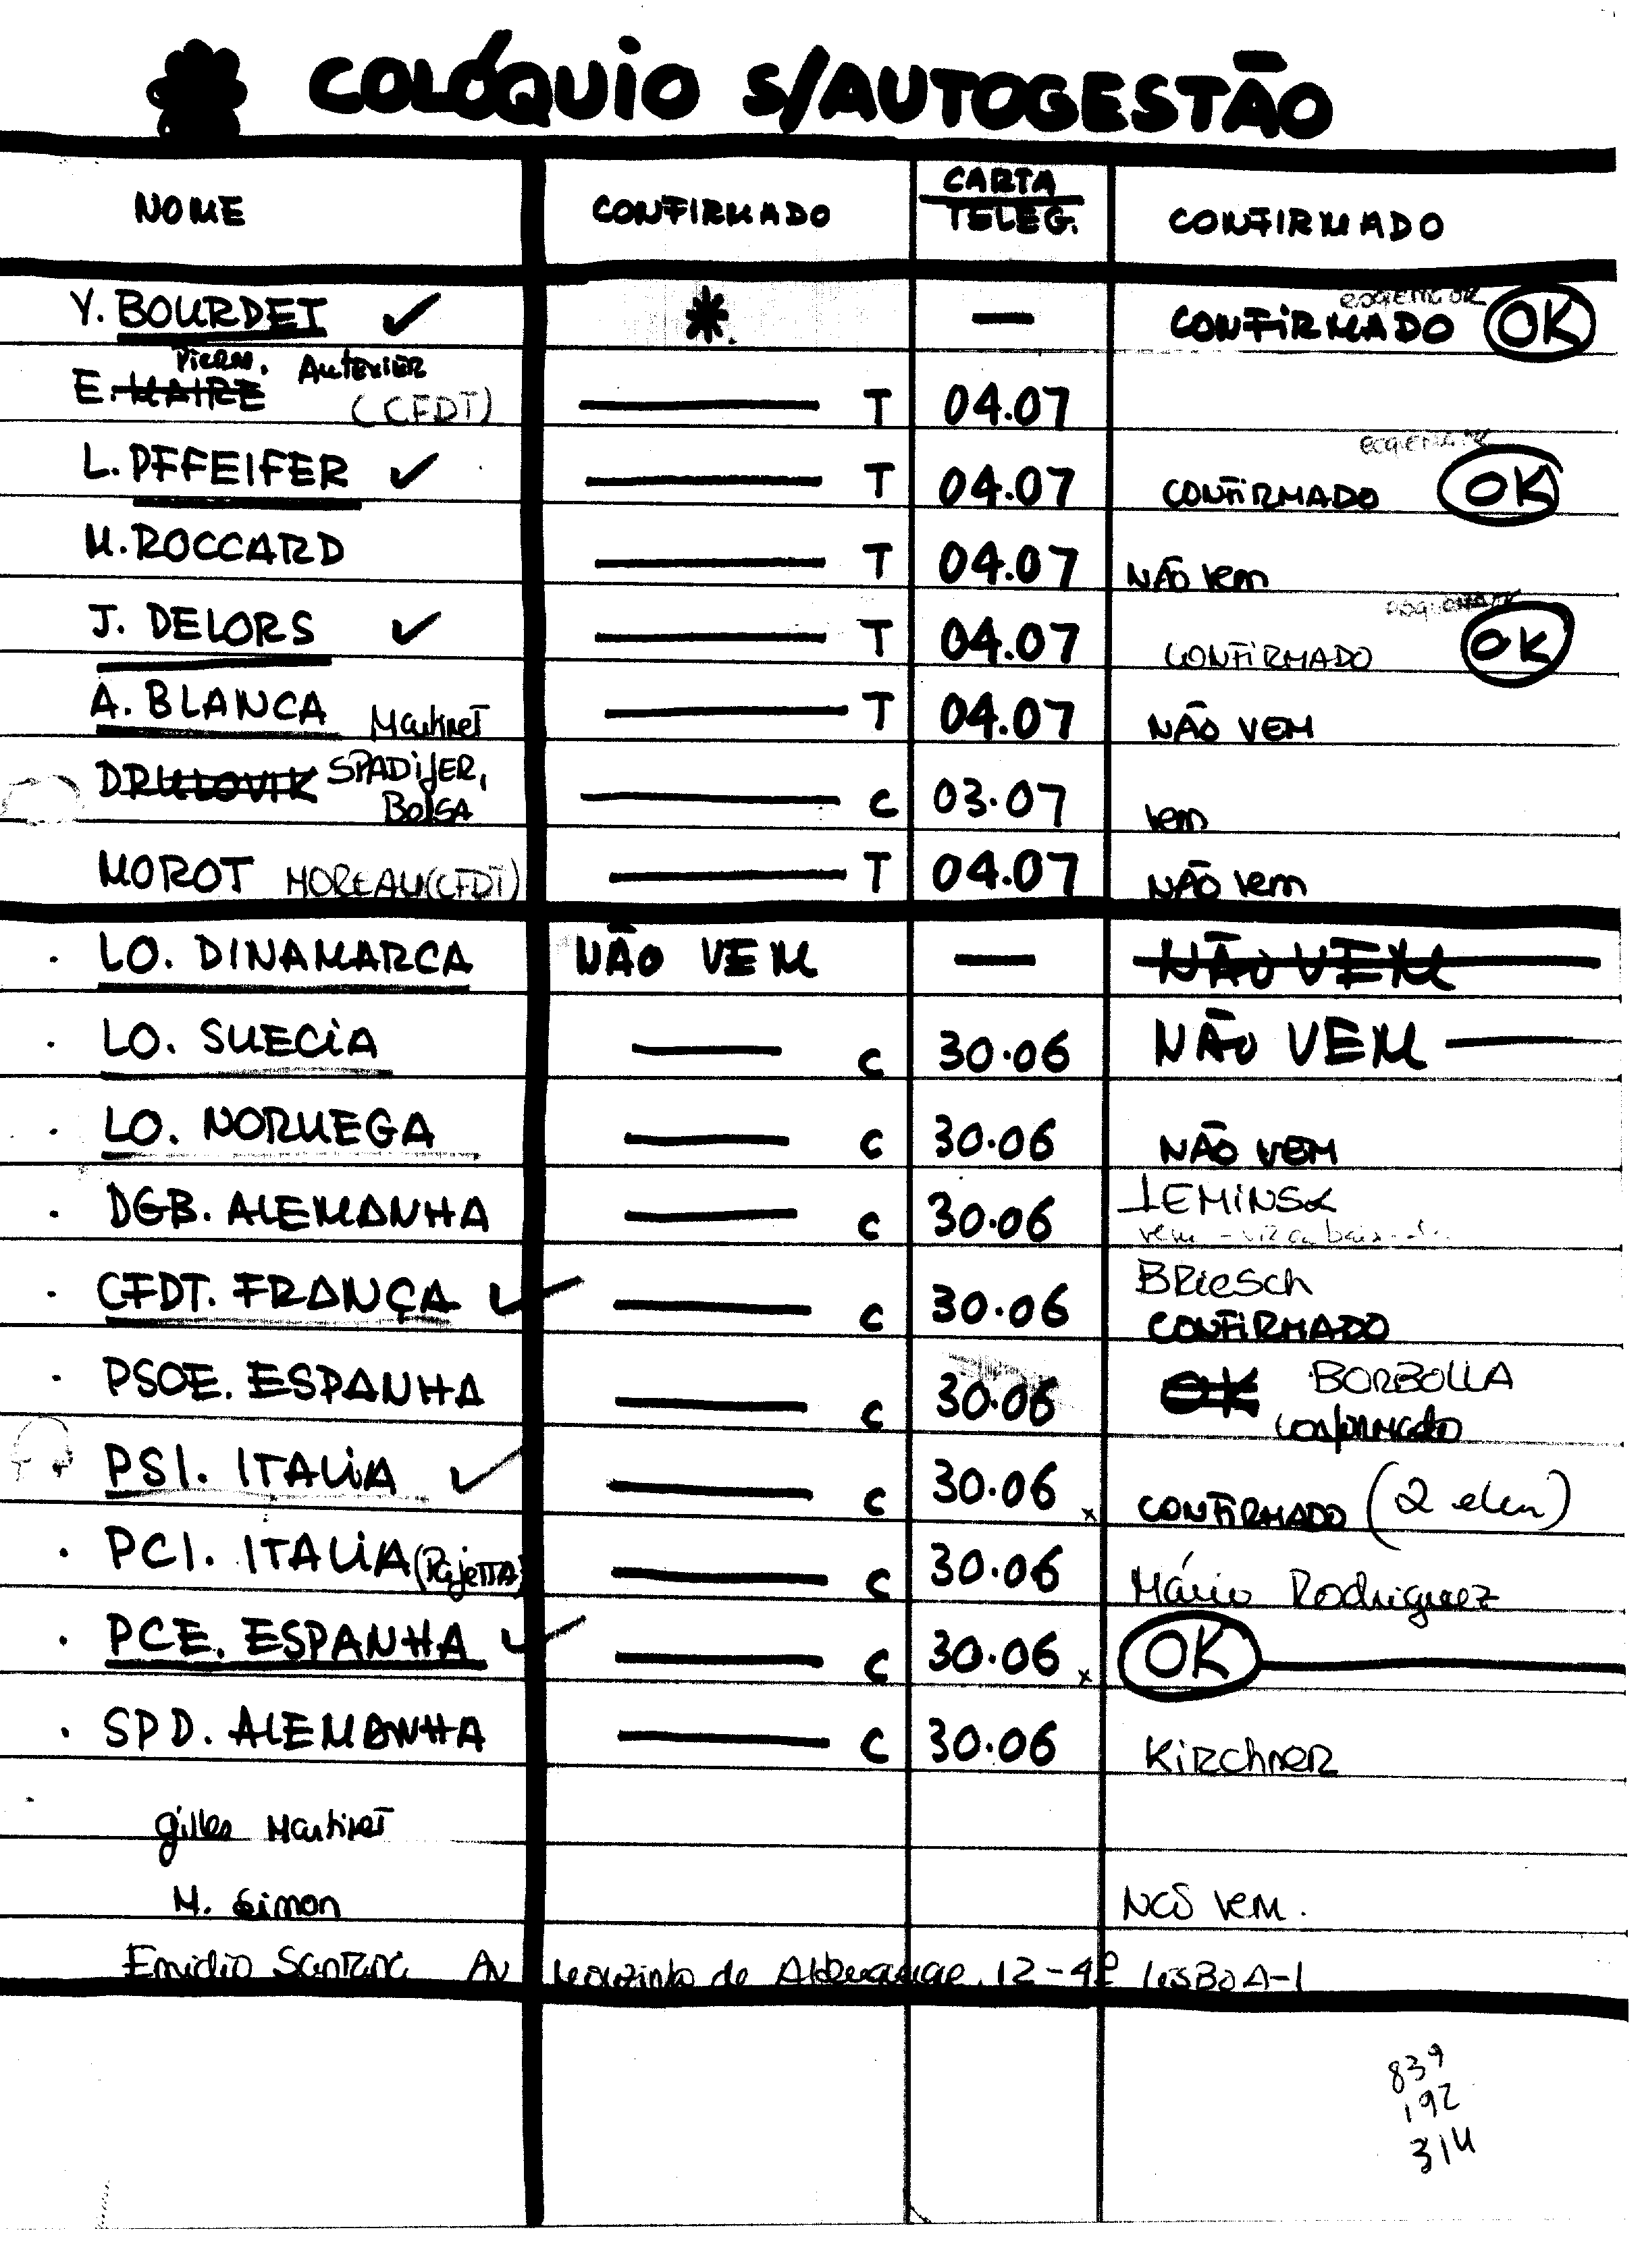 COLÓQUIO S/AUTOGESTÃO
NOME CONFIRMADO CARTA TELEG. CONFIRMADO
Y. BOURDET ✓ * — CONFIRMADO OK
Pierre. Autexier
E. MAIRE (CFDT) — T 04.07
L. PFFEIFER ✓ — T 04.07 CONFIRMADO OK
M. ROCCARD — T 04.07 NÃO vem
J. DELORS ✓ — T 04.07 CONFIRMADO OK
A. BLANCA Martinet — T 04.07 NÃO VEM
DRULOVIK SPADIJER, BolSA — C 03.07 vem
MOROT MOREAU (CFDT) — T 04.07 NÃO vem
. LO. DINAMARCA NÃO VEM — NÃO VEM
. LO. SUECIA — C 30.06 NÃO VEM —
. LO. NORUEGA — C 30.06 NÃO VEM
. DGB. ALEMANHA — C 30.06
. CFDT. FRANÇA ✓ — C 30.06 BRiesch CONFIRMADO
. PSOE. ESPANHA — C 30.06 OK BORBOLLA confirmado
PSI. ITALIA ✓ — C 30.06 x CONFIRMADO (2 elem)
. PCI. ITALIA (PajeTTA) — C 30.06 Mário Rodriguez
. PCE. ESPANHA ✓ — C 30.06 x OK —
. SPD. ALEMANHA — C 30.06 KiRchneR
gilles Martinet
M. Simon Não vem.
Emidio Santana Av Mouzinho de Albuquerque, 12-4º LISBOA-1
839
192
314